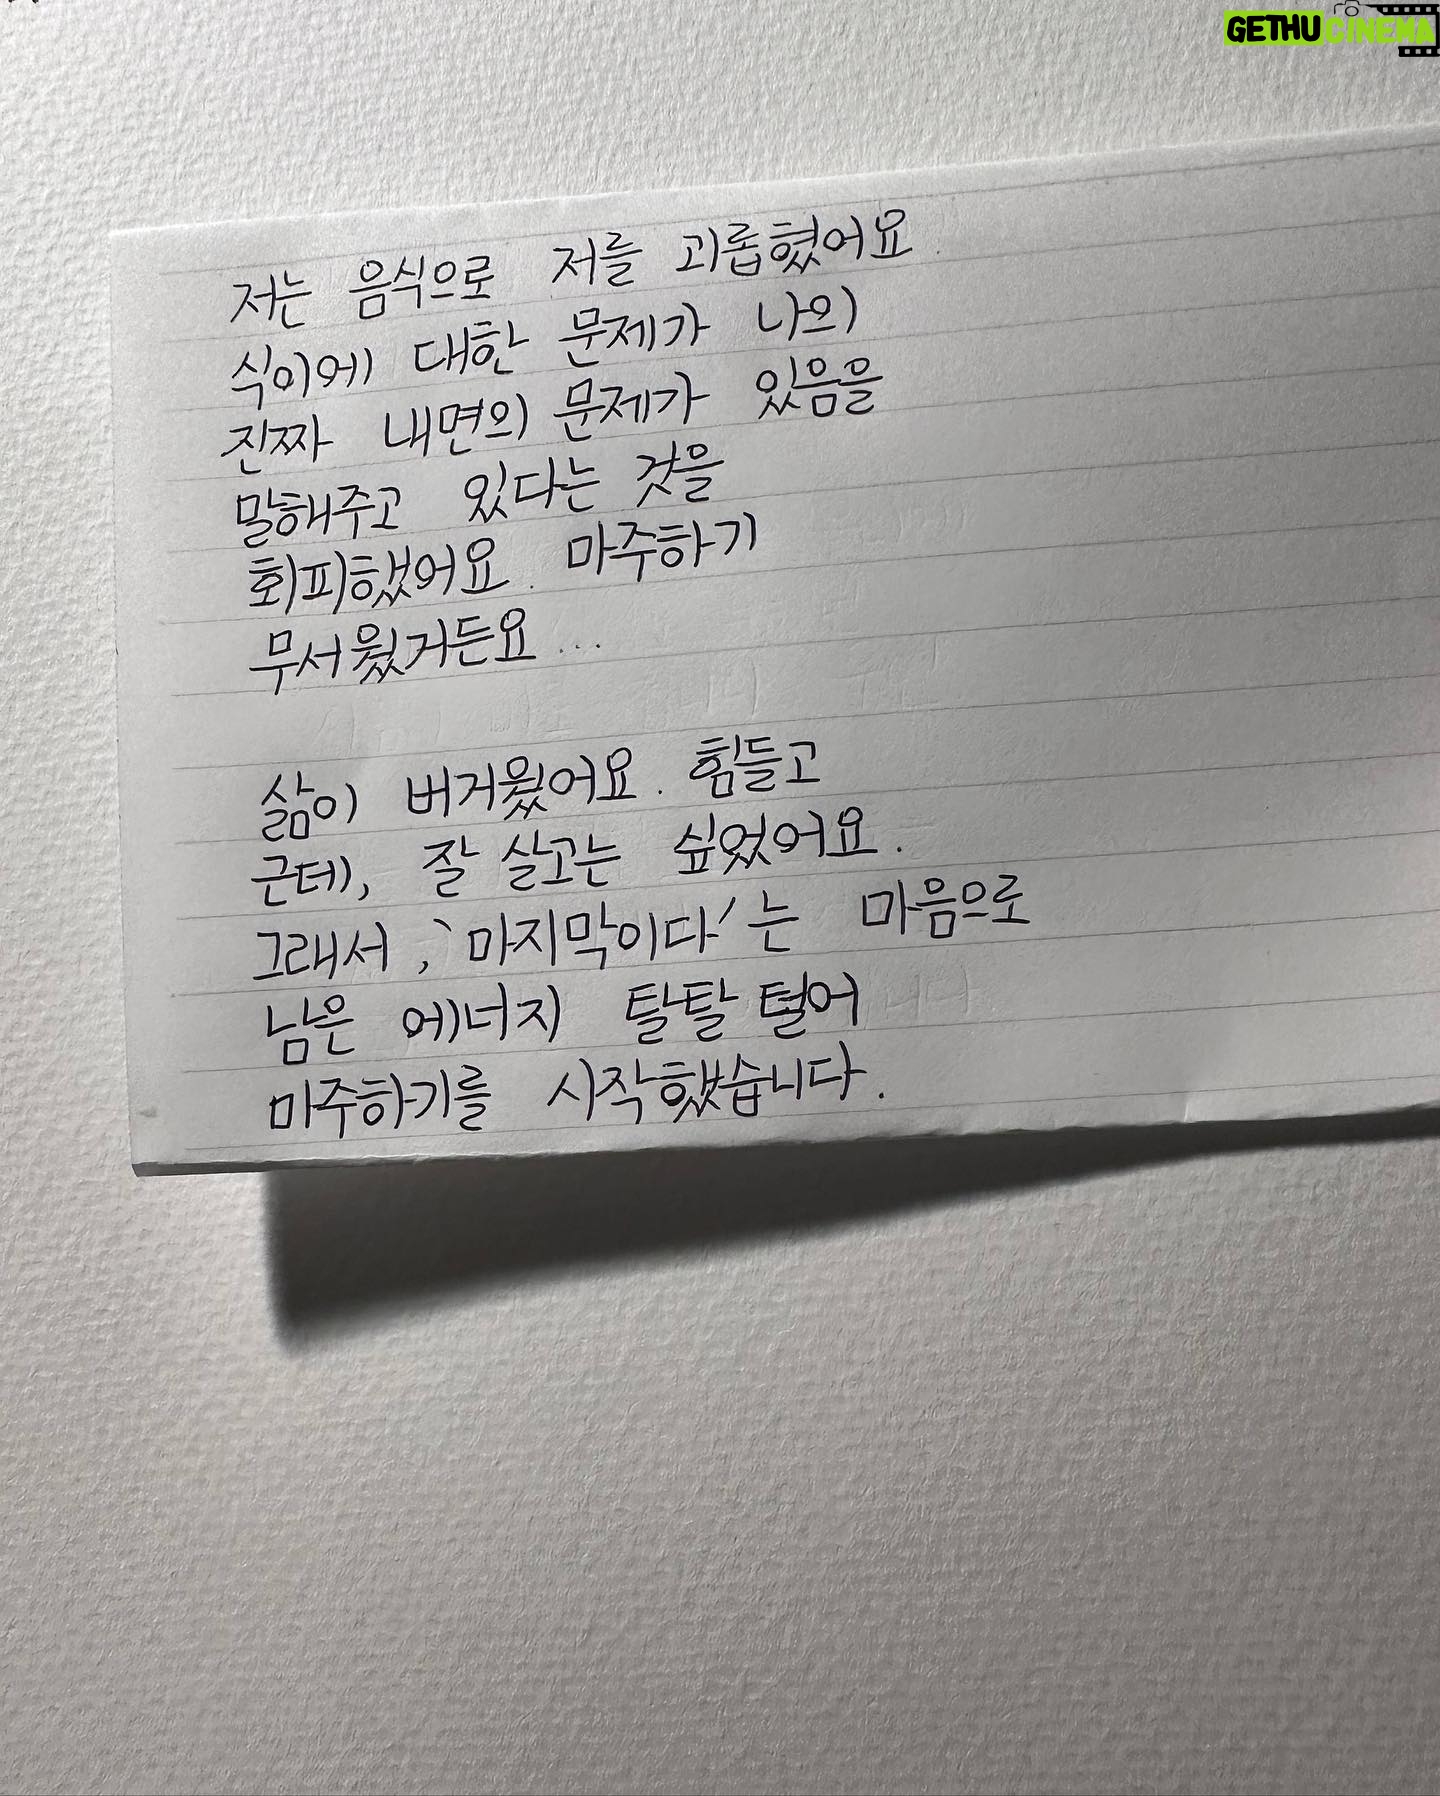 GETHUCINEMA
저는 음식으로 저를 괴롭혔어요.
식이에 대한 문제가 나의
진짜 내면의 문제가 있음을
말해주고 있다는 것을
회피했어요. 마주하기
무서웠거든요...
삶이 버거웠어요. 힘들고
근데, 잘 살고는 싶었어요.
그래서, '마지막이다'는 마음으로
남은 에너지 탈탈 털어
마주하기를 시작했습니다.